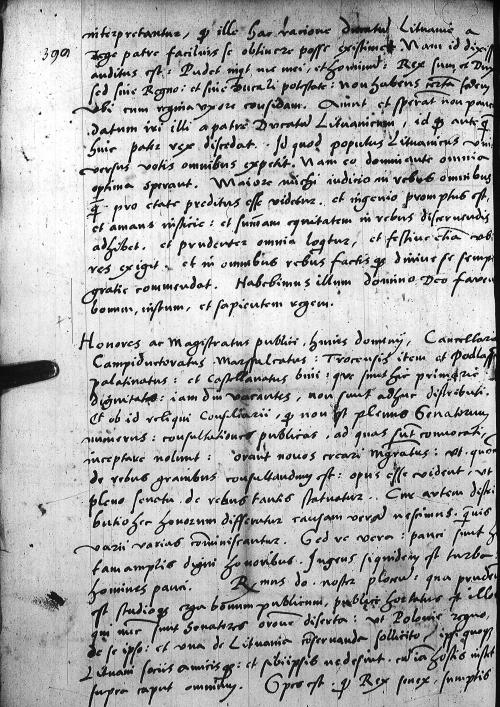 interpretantur, q ille hac ratione ducatu Lituanie a
399
Rege patre facilius se obtinere posse existimet. Nam id dixiss
auditus est: Pudet me mei, et hominu: Rex sum et Du
sed sine Regno: et sine Ducali potestate: non habens certa sedem
vbi cum regina vxore considam. Aiunt et sperat non paru
datum iri illi a patre Ducatu Lituanicum, id q anteq
hinc pater rex discedat. Id quod populus Lituanicus vni
versus votis omnibus expetit. Nam eo dominante omnia
optima sperant. Maiore michi iudicio in rebus omnibus
q pro etate preditus esse videtur, et ingenio promptus est,
et amans iusticie: et summam equitatem in rebus discernendis
adhibet, et prudenter omnia loqtur, et festiue etia vbi
res exigit. et in omnibus rebus factis q diuine se semp
gratie commendat. Habebimus illum domino Deo fauen
bonum, iustum, et sapientem regem.
Honores ac Magistratus publici, huius dominij, Cancellara
Campiductoratus Marsalcatus: Trocensis item et Podlass
palatinatus: et Castellanatus bini: que sunt hic primarie
dignitates: iam diu vacantes, non sunt adhuc distributi.
Et ob id reliqui Consiliarii, q non est plenus Senatorum
numerus: consultationes publicas, ad quas sunt conuocati,
inceptare nolunt: orant nouos creari mgratus: vt, quom
de rebus grauibus consultandum est: opus esse vident, vt
pleno senatu de rebus tantis statuatur. Cur autem distri
butio hec honorum differatur causam veram nescimus. quis
varii varias comminiscantur. Sed re vera: pauci sunt h
tam amplis digni honoribus. Ingens siquidem est turba
homines pauci. R mus do. noster plocen: qua pruden
est studioq erga bonum publicum, publice hortatus est illo
qui nunc sunt Senatores orone diserta: vt Polonie regno,
de se ipso: et vna de Lituania conseruanda solliciti, ipsi quoq
Lituani sociis amicisq: et sibiipsis ne desint. cu ia hostis instet
supra caput omnium. Opus est. q Rex senex, sumptis